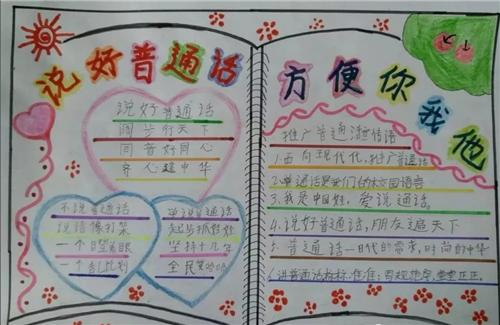 说好普通话
方便你我他
说好普通话
阔步行天下
同音好同心
齐心建中华
不说普通话
说话像打架
一个日望着眼
一个乱比划
坚持十几年
全民笑哈哈
推广普通
1.面向现代化,推广普通话
2.普通话是我们的校园语言
3.我是中国娃,爱说普通话
4.说好普通话,朋友遍天下
5.普通话一时代的需求,时尚的中华
6.讲普通话标标准准
堂堂正正